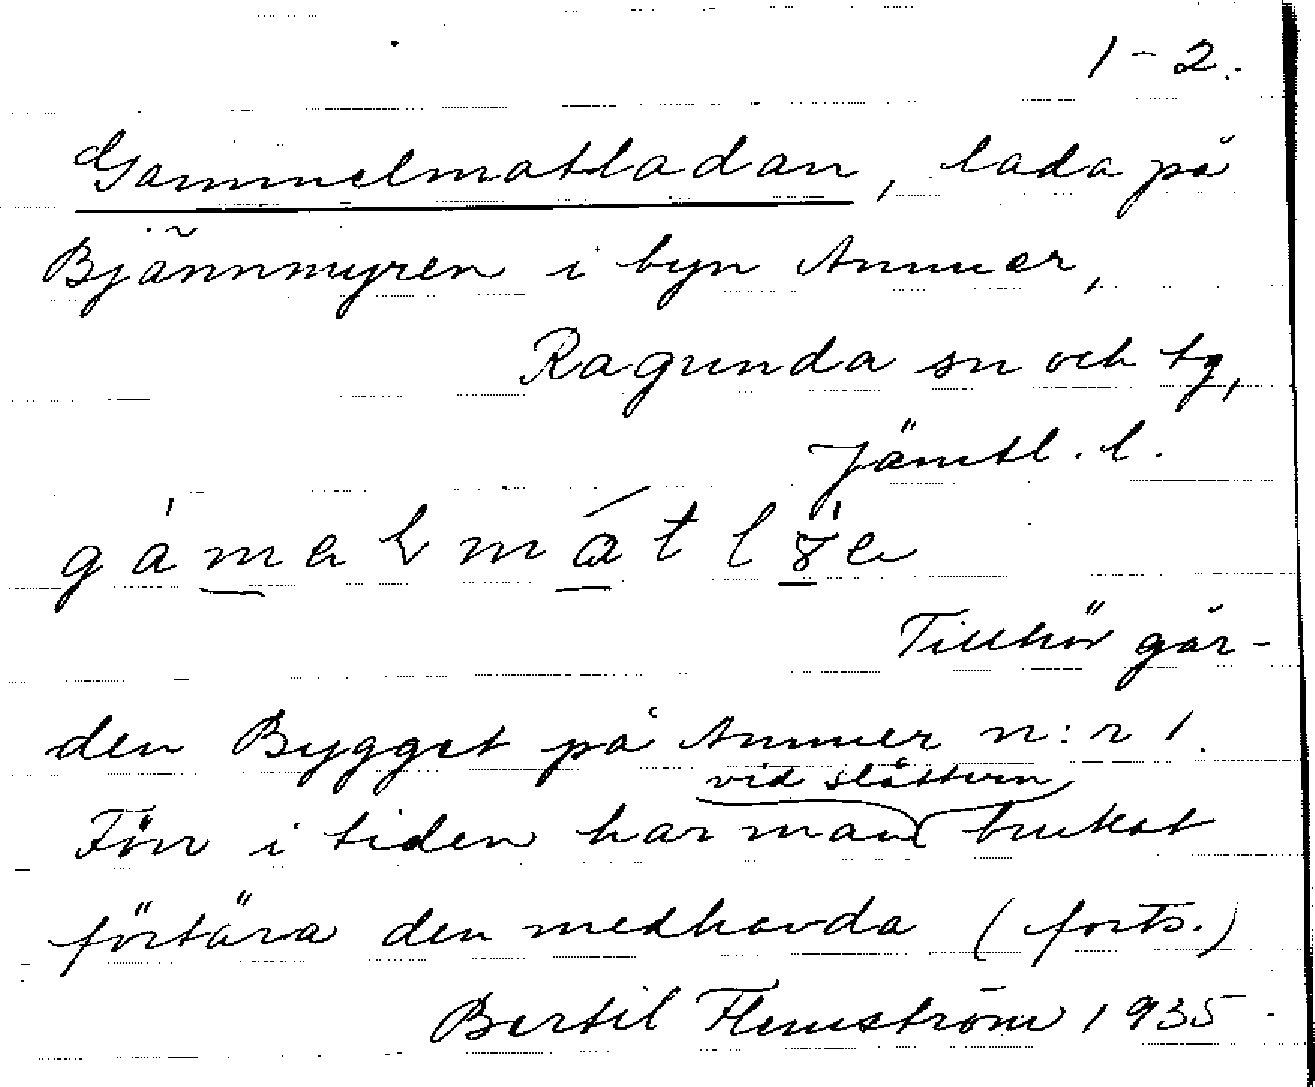 1-2.
Gammelmatladan, lada på
Bjännmyren i byn Ammer,
Ragunda sn och tg,
Jämtl. l.
Tillhör går-
den Bygget på Ammer n:r 1.
vid slåttern
Förr i tiden har man brukat
förtära den medhavda (forts.)
Bertil Flemström 1935